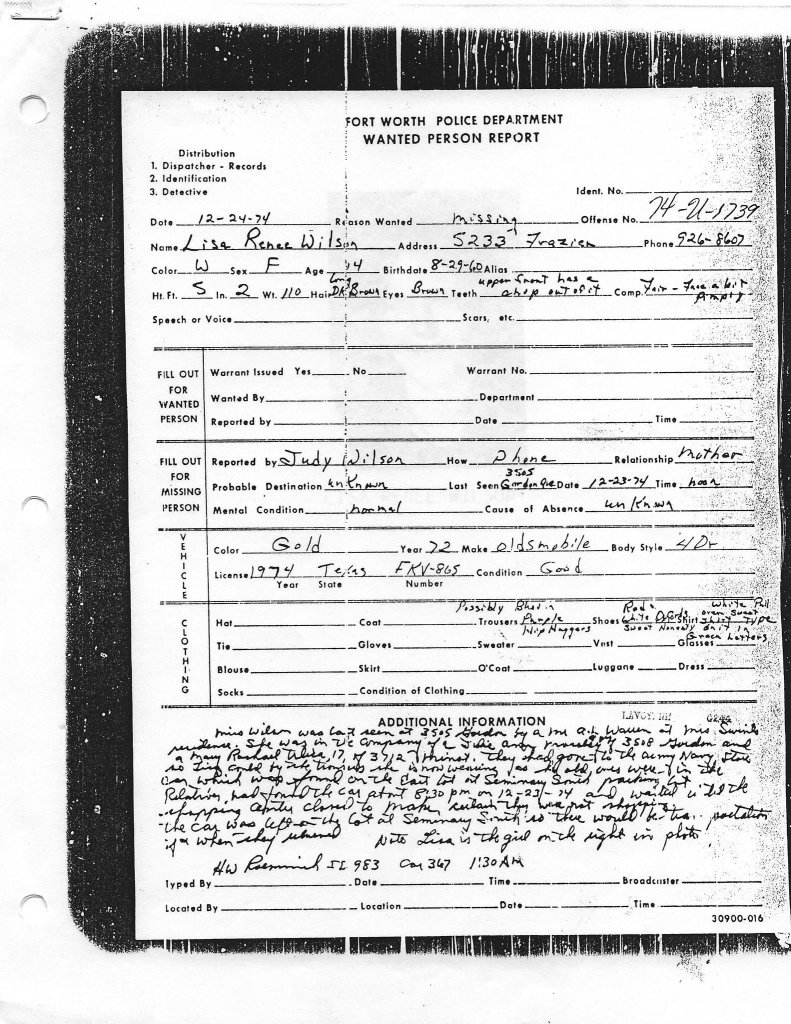 FORT WORTH POLICE DEPARTMENT
WANTED PERSON REPORT
Distribution
1. Dispatcher - Records
2. Identification
3. Detective
Ident. No.
Date 12-24-74 Reason Wanted missing Offense No. 74-U-1739
Name Lisa Renee Wilson Address 5233 Frazier Phone 926-8607
Color W Sex F Age 14 Birthdate 8-29-60 Alias
Ht. Ft. 5 In. 2 Wt. 110 Hair long DK Brown Eyes Brown Teeth upper front has a chop out of it Comp. Fair - Face a bit Pimply
Speech or Voice Scars, etc.
FILL OUT FOR WANTED PERSON
Warrant Issued Yes No Warrant No.
Wanted By Department
Reported by Date Time
FILL OUT FOR MISSING PERSON
Reported by Judy Wilson How Phone Relationship Mother
Probable Destination unknown Last Seen 3505 Gordon Date 12-23-74 Time noon
Mental Condition normal Cause of Absence unknown
VEHICLE
Color Gold Year 72 Make oldsmobile Body Style 4Dr
License 1974 Texas FKV-865 Condition Good
Year State Number
CLOTHING
Hat Coat Trousers Purple Hip Huggers Shoes White Shirt White Pull over Sweat shirt type
Sweet Honesty on it in Green Letters
Tie Gloves Sweater Vest Glasses
Blouse Skirt O'Coat Luggage Dress
Socks Condition of Clothing
ADDITIONAL INFORMATION
Miss Wilson was last seen at 3505 Gordon by a Mr at Mrs
residence. She was in the company of a Julie Ann 3508 Gordon and
a Mary Rachael 17, of 3712 They had gone to the Army Navy Store
so Lisa could by the trousers she is now wearing, as the old ones were in the
car which was found on the East lot at Seminary South parking lot
Relatives had found the car about 8:30 pm on 12-23-74 and waited until the
shopping center closed to make certain they was not shopping
the car was left on the lot at Seminary South so there would be
if & when they returned Note Lisa is the girl on the right in photo
HW 983 Car 367 1:30AM
Typed By Date Time Broadcaster
Located By Location Date Time
30900-016